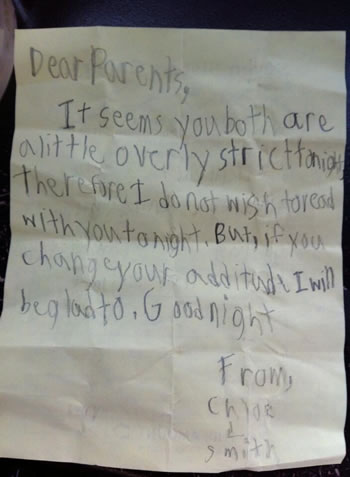 Dear Parents,
It seems you both are
a little overly strict tonight,
therefore I do not wish to read
with you tonight. But, if you
change your additude I will
be glad to. Good night
From,
Chloe
smith